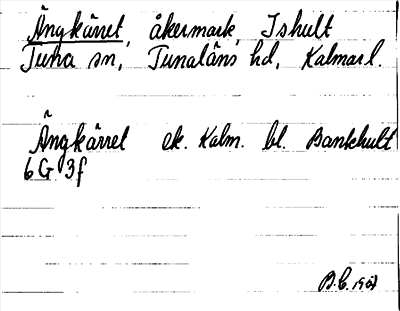 Ängkärret, åkermark, Ishult
Tuna sn, Tunaläns hd, Kalmar l.
Ängkärret ek. Kalm. bl. Bankhult
6G 3f
B.C.